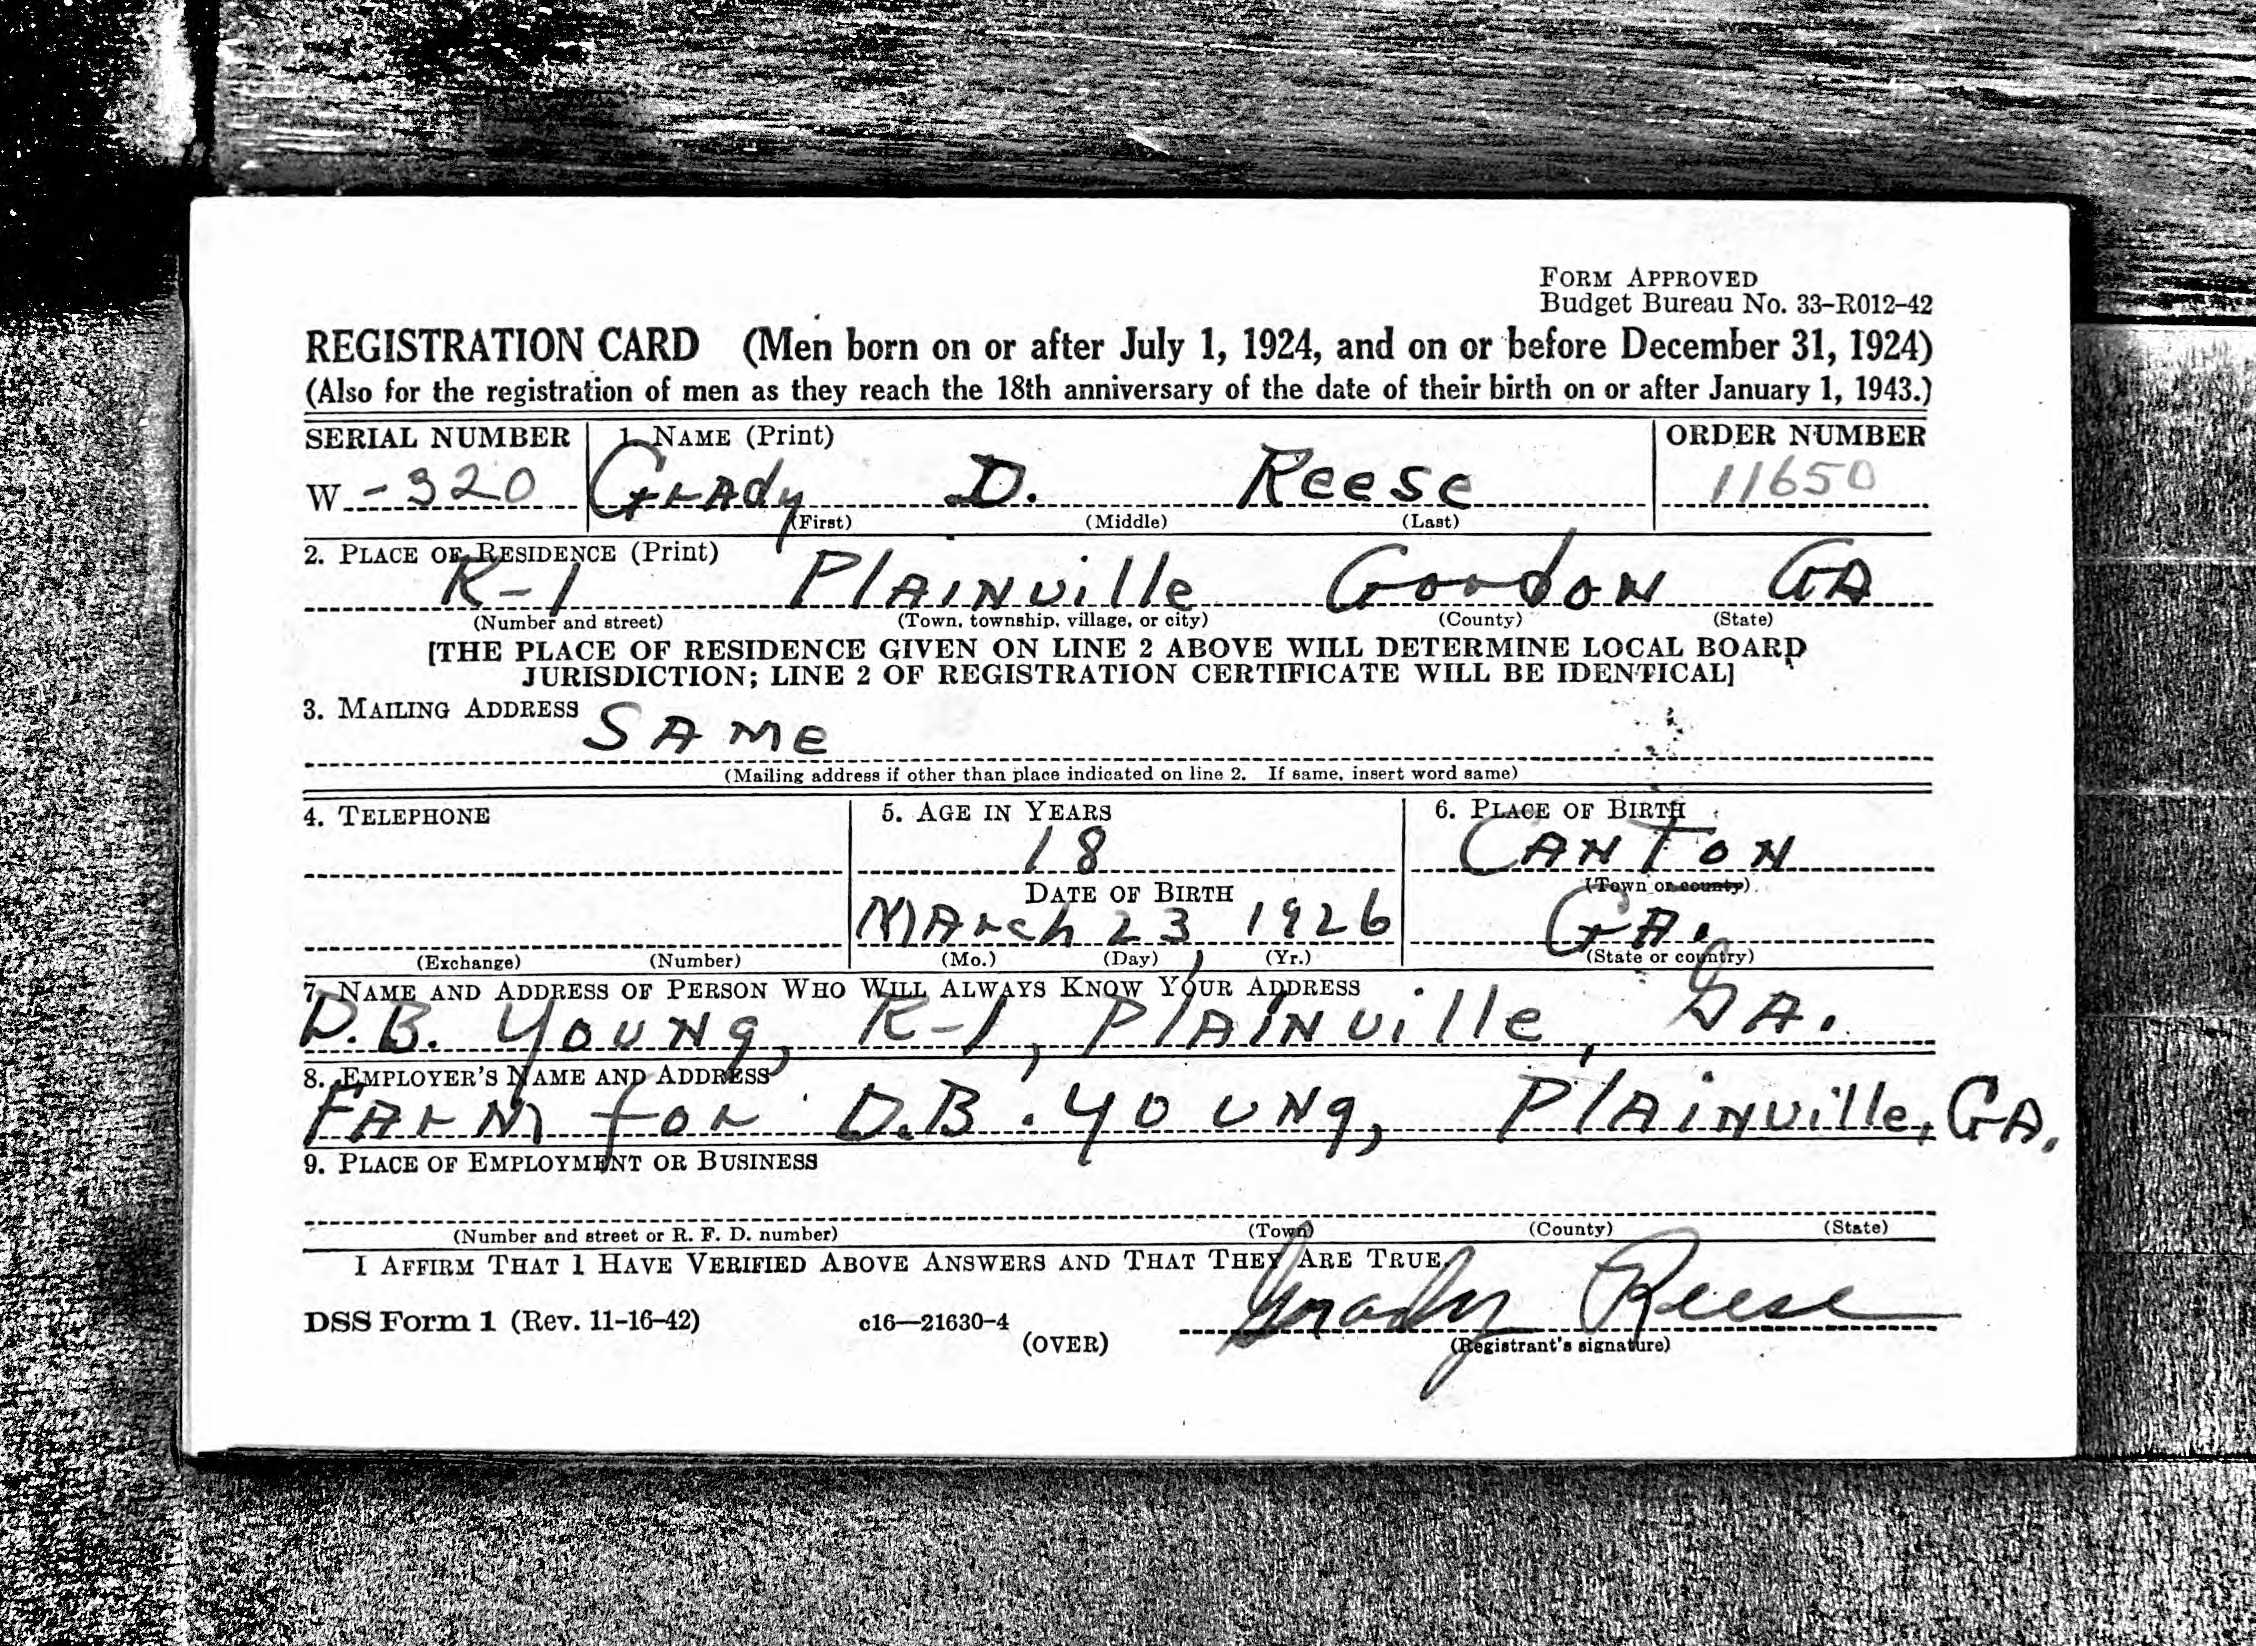 FORM APPROVED
Budget Bureau No. 33-R012-42
REGISTRATION CARD (Men born on or after July 1, 1924, and on or before December 31, 1924)
(Also for the registration of men as they reach the 18th anniversary of the date of their birth on or after January 1, 1943.)
SERIAL NUMBER 1. NAME (Print) ORDER NUMBER
W -320 Grady D. Reese 11650
(First) (Middle) (Last)
2. PLACE OF RESIDENCE (Print)
R-1 Plainville Gordon GA
(Number and street) (Town, township, village, or city) (County) (State)
[THE PLACE OF RESIDENCE GIVEN ON LINE 2 ABOVE WILL DETERMINE LOCAL BOARD
JURISDICTION; LINE 2 OF REGISTRATION CERTIFICATE WILL BE IDENTICAL]
3. MAILING ADDRESS
SAME
(Mailing address if other than place indicated on line 2. If same, insert word same)
4. TELEPHONE 5. AGE IN YEARS 6. PLACE OF BIRTH
18 CANTON
DATE OF BIRTH (Town or county)
March 23, 1926 GA.
(Exchange) (Number) (Mo.) (Day) (Yr.) (State or country)
7. NAME AND ADDRESS OF PERSON WHO WILL ALWAYS KNOW YOUR ADDRESS
D.B. Young, R-1, Plainville, GA.
8. EMPLOYER'S NAME AND ADDRESS
FArM for D.B. Young, Plainville, GA.
9. PLACE OF EMPLOYMENT OR BUSINESS
(Number and street or R. F. D. number) (Town) (County) (State)
I AFFIRM THAT I HAVE VERIFIED ABOVE ANSWERS AND THAT THEY ARE TRUE.
DSS Form 1 (Rev. 11-16-42) c16—21630-4 Grady Reese
(OVER) (Registrant's signature)